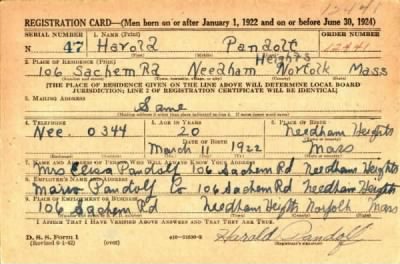 12441
REGISTRATION CARD—(Men born on or after January 1, 1922 and on or before June 30, 1924)
SERIAL NUMBER 1. NAME (Print) ORDER NUMBER
N 47 Harold Pandolf 12441
(First) (Middle) (Last)
2. PLACE OF RESIDENCE (Print) Heights
106 Sachem Rd Needham Norfolk Mass
(Number and street) (Town, township, village, or city) (County) (State)
[THE PLACE OF RESIDENCE GIVEN ON THE LINE ABOVE WILL DETERMINE LOCAL BOARD
JURISDICTION; LINE 2 OF REGISTRATION CERTIFICATE WILL BE IDENTICAL]
3. MAILING ADDRESS
Same
[Mailing address if other than place indicated on line 2. If same insert word same]
4. TELEPHONE 5. AGE IN YEARS 6. PLACE OF BIRTH
Nee. 0344 20 Needham Heights
DATE OF BIRTH
March 11 1922 Mass
(Mo.) (Day) (Yr.)
7. NAME AND ADDRESS OF PERSON WHO WILL ALWAYS KNOW YOUR ADDRESS
Mrs Elisa Pandolf 106 Sachem Rd Needham Heights
8. EMPLOYER'S NAME AND ADDRESS
Mario Pandolf Co 106 Sachem Rd Needham Heights
9. PLACE OF EMPLOYMENT OR BUSINESS
106 Sachem Rd Needham Heights Norfolk Mass
I AFFIRM THAT I HAVE VERIFIED ABOVE ANSWERS AND THAT THEY ARE TRUE.
D. S. S. Form 1
(Revised 6-1-42) (over) Harold Pandolf
(Registrant's signature)